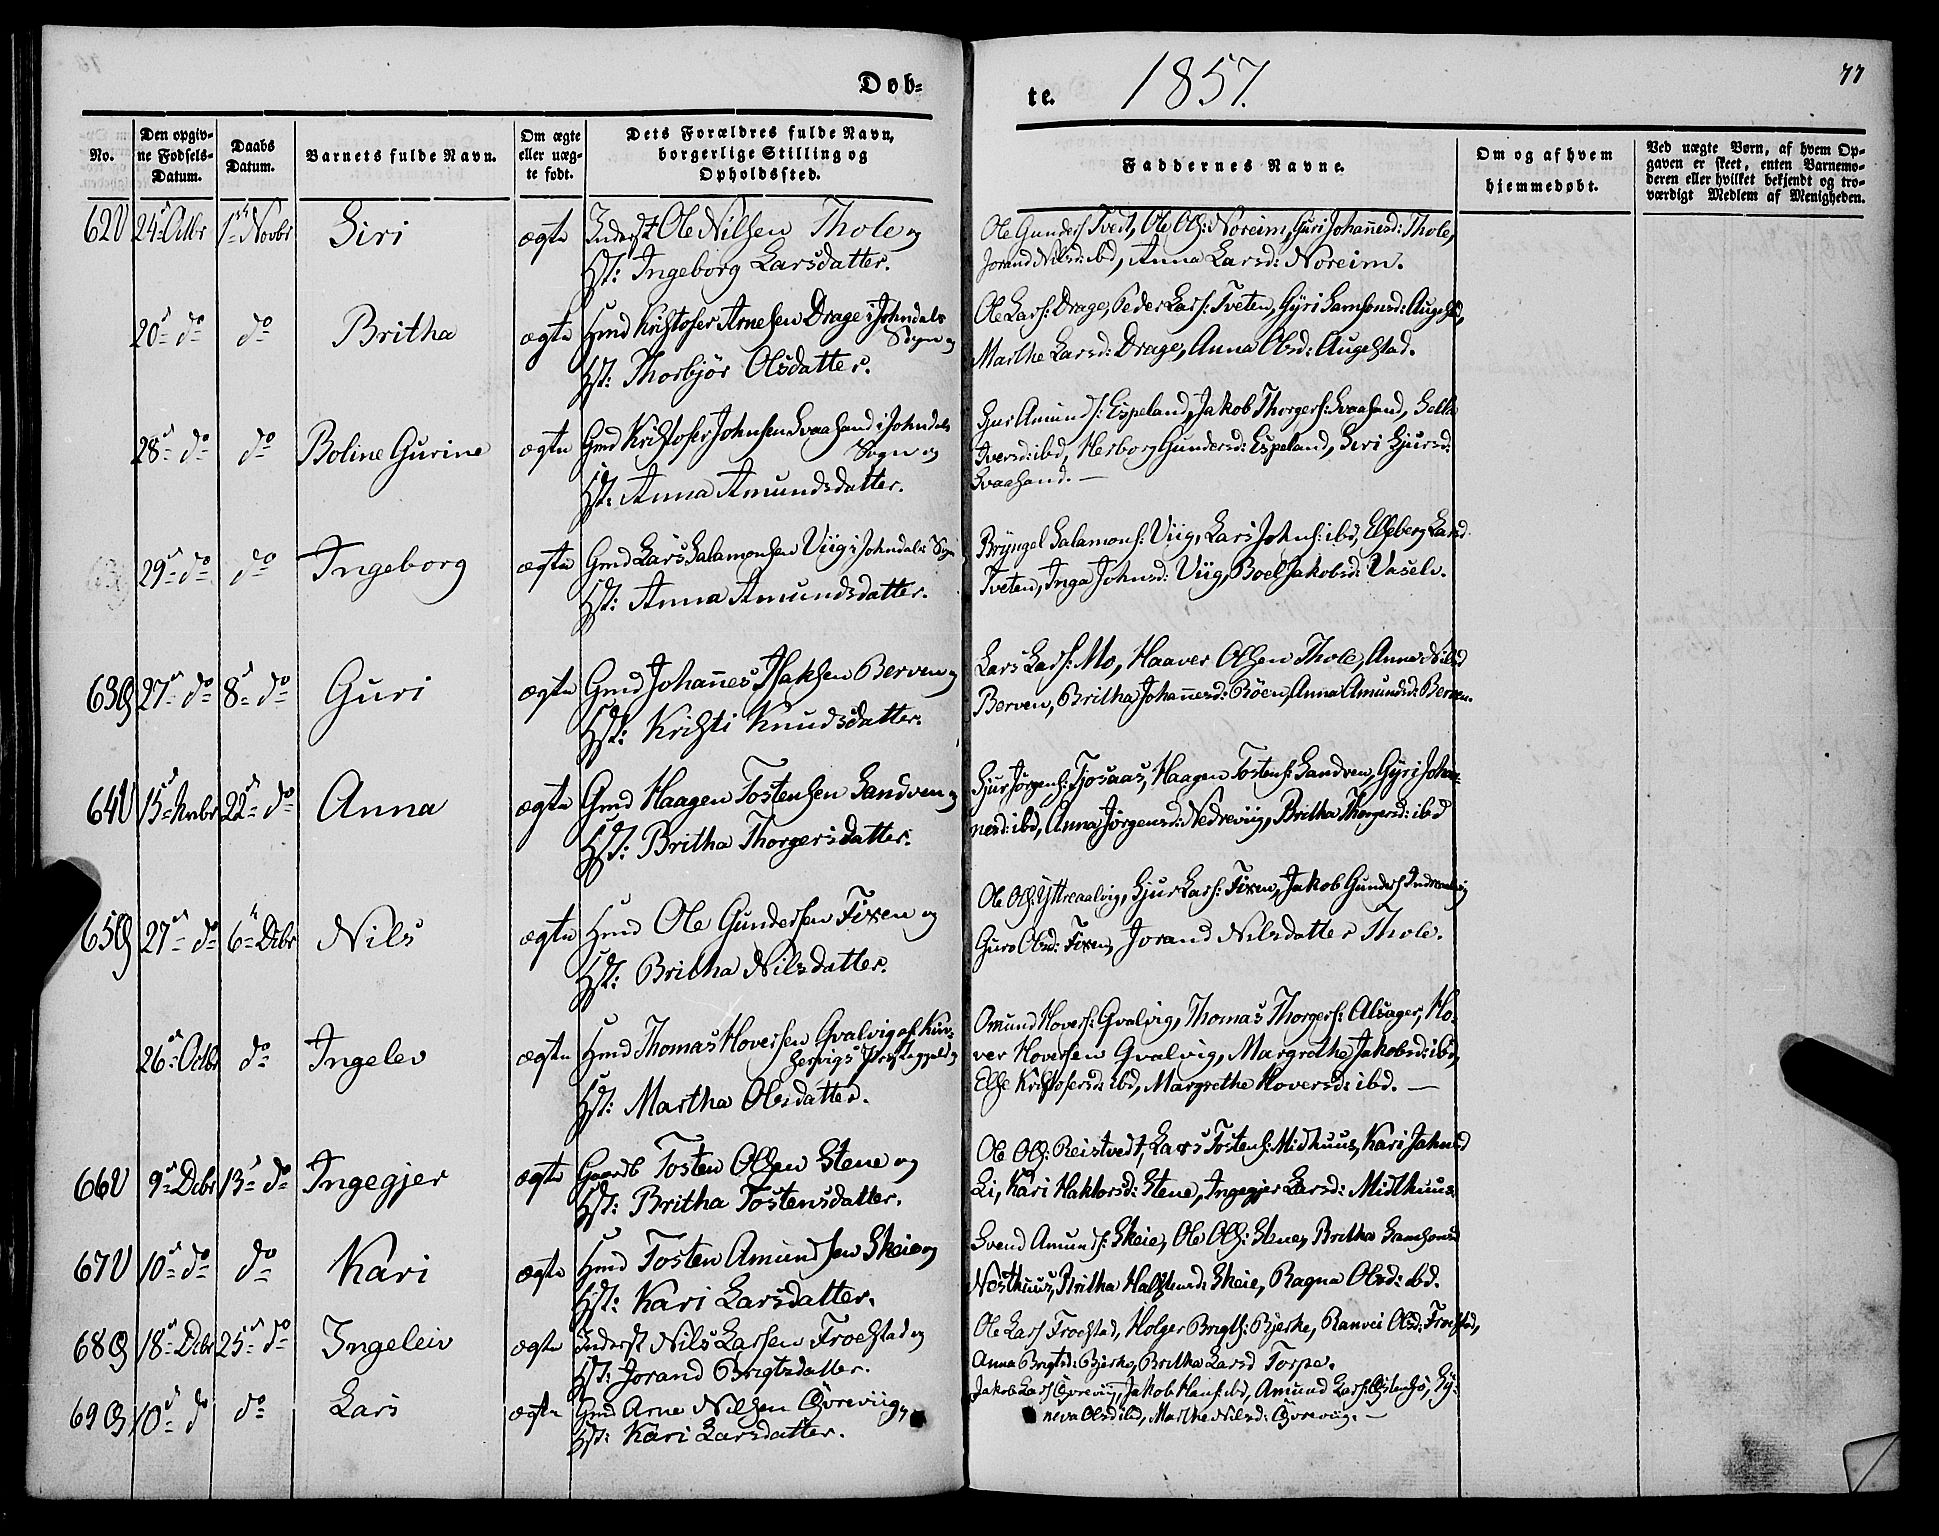 Døb-
te. 1857. 77
No.
Den opgiv-
ne Fødsels-
Datum.
Daabs
Datum.
Barnets fulde Navn.
Om ægte
eller uæg-
te født.
Dets Forældres fulde Navn,
borgerlige Stilling og
Opholdssted.
Faddernes Navne.
Om og af hvem
hjemmedøbt.
Ved uægte Børn, af hvem Op-
gaven er skeet, enten Barnemo-
deren eller hvilket bekjendt og tro-
værdigt Medlem af Menigheden.
62U 24 Octbr 1ste Novbr Siri ægte Inderst Ole Nilsen Thole og
Hst: Ingeborg Larsdatter.
Ole Gunders: Tvedt, Ole Ols: Noreim, Guri Johannesd: Thole,
Jorand Nilsd: ibd, Anna Larsd: Noreim.
20 do do Britha ægte Hmd Kristofer Arnesen Drage i Johndals
Sogn og
Hst: Thorbjør Olsdatter.
Ole Lars: Drage, Peder Lars: Tveten, Gyri Samsonsd: Augestad,
Marthe Larsd: Drage, Anna Olsd: Augestad.
28 do do Boline Gurine ægte Gmd Kristofer Johnsen Svaasand i Johndals
Sogn og
Hst: Anna Amundsdatter.
Amunds: Espeland, Jakob Thorgers: Svaasand,
Iversd: ibd, Herborg Gundersd: Espeland, Siri Sjursd:
Svaasand. —
29 do do Ingeborg ægte Gmd Lars Salamonsen Viig i Johndals Sogn
Hst: Anna Amundsdatter.
Bryngel Salamons: Viig, Lars Johns: ibd, Elseberg Larsd
Tveten, Inga Johnsd: Viig, Boel Jakobsd: Vasele.
63G 27 do 8 do Guri ægte Gmd Johannes Isaksen Berven og
Hst: Kristi Knudsdatter.
Lars Lars: Mo, Haaver Olsen Thole, Anna Nilsd
Berven, Britha Johannesd: Bøen, Anna Amundsd: Berven.
64U 15 Nvbr 22 do Anna ægte Gmd Haagen Tostensen Sandven og
Hst: Britha Thorgersdatter.
Sjur Jørgens: Tjosaas, Haagen Tostens: Sandven, Gyri Johan-
nesd: ibd, Anna Jørgensd: Nedreviig, Britha Thorgersd: ibd
65G 27 do 6 Dcbr Nils ægte Hmd Ole Gundersen Fixen og
Hst: Britha Nilsdatter.
Ole Ols: Yttreaalvig, Sjur Lars: Fixen, Jakob Gunders: Indreaalvig
Guro Olsd: Fixen, Jorand Nilsdatter Thole.
26 Octbr do Ingelev ægte Hmd Thomas Hoversen Qvalvig af Kin-
servigs Præstegjeld og
Hst: Martha Olsdatter.
Omund Hovers: Qvalvig, Thomas Thorgers: Alsager, Ho-
ver Hoversen Qvalvig, Margrethe Jakobsd: ibd,
Else Kristofersd: ibd, Margrethe Hoversd: ibd. —
66U 9 Dcbr 13 do Ingegjer ægte Gaardb Tosten Olsen Stene og
Hst: Britha Tostensdatter.
Ole Ols: Reistvedt, Lars Tostens: Midhuus, Kari Johnsd
Li, Kari Haktorsd: Stene, Ingegjer Larsd: Midthuus.
67U 10 do do Kari ægte Hmd Tosten Amundsen Skeie og
Hst: Kari Larsdatter.
Svend Amunds: Skeie, Ole Ols: Stene, Britha Samsonsd
Nesthuus, Britha Halstensd: Skeie, Ragna Olsd: ibd.
68G 18 Dcbr 25 do Ingeleiv ægte Inderst Nils Larsen Froestad og
Hst: Jorand Brigtsdatter.
Ole Lars Froestad, Holger Brigts: Bjerke, Ranvei Olsd: Froestad,
Anna Brigtsd: Bjerke, Britha Larsd Torpe.
69G 10 do do Lars ægte Gmd Arne Nilsen Øvreviig,
Hst: Kari Larsdatter.
Jakob Lars Øvreviig, Jakob Hans: ibd, Amund Lars: Østensø, Sy-
neva Olsd: ibd, Marthe Nilsd: Øvreviig. —